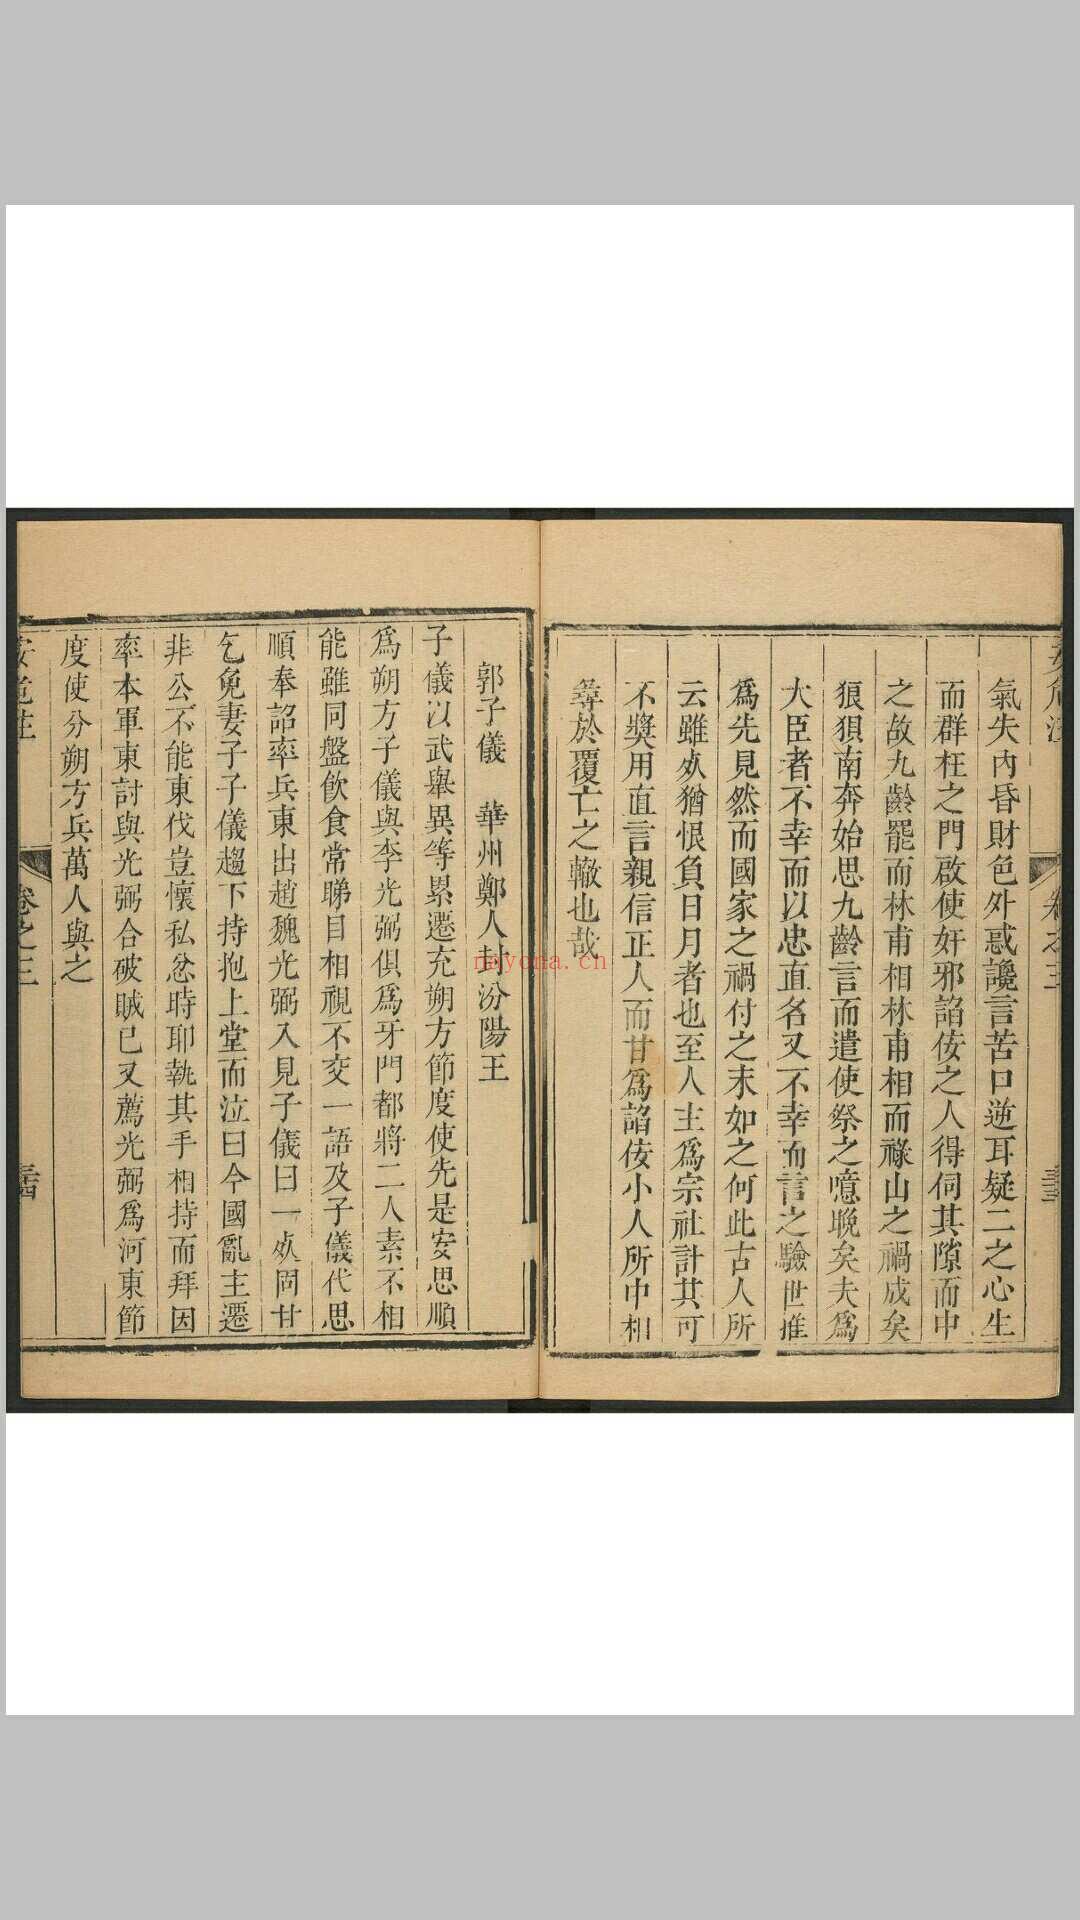 氣失內昏財色外惑讒言苦口逆耳疑二之心生
而群枉之門啟使奸邪諂侫之人得伺其隙而中
之故九齡罷而林甫相林甫相而祿山之禍成矣
狼狽南奔始思九齡言而遣使祭之噫晚矣夫爲
大臣者不幸而以忠直名又不幸而言之驗世推
爲先見然而國家之禍付之末如之何此古人所
云雖死猶恨負日月者也至人主爲宗社計其可
不奬用直言親信正人而甘爲諂侫小人所中相
尋於覆亡之轍也哉
郭子儀 華州鄭人封汾陽王
子儀以武舉異等累遷充朔方節度使先是安思順
爲朔方子儀與李光弼俱爲牙門都將二人素不相
能雖同盤飲食常睇目相視不交一語及子儀代思
順奉詔率兵東出趙魏光弼入見子儀曰一死固甘
乞免妻子子儀趨下持抱上堂而泣曰今國亂主遷
非公不能東伐豈懷私忿時耶執其手相持而拜因
率本軍東討與光弼合破賊已又薦光弼爲河東節
度使分朔方兵萬人與之
卷之三
nayona.cn